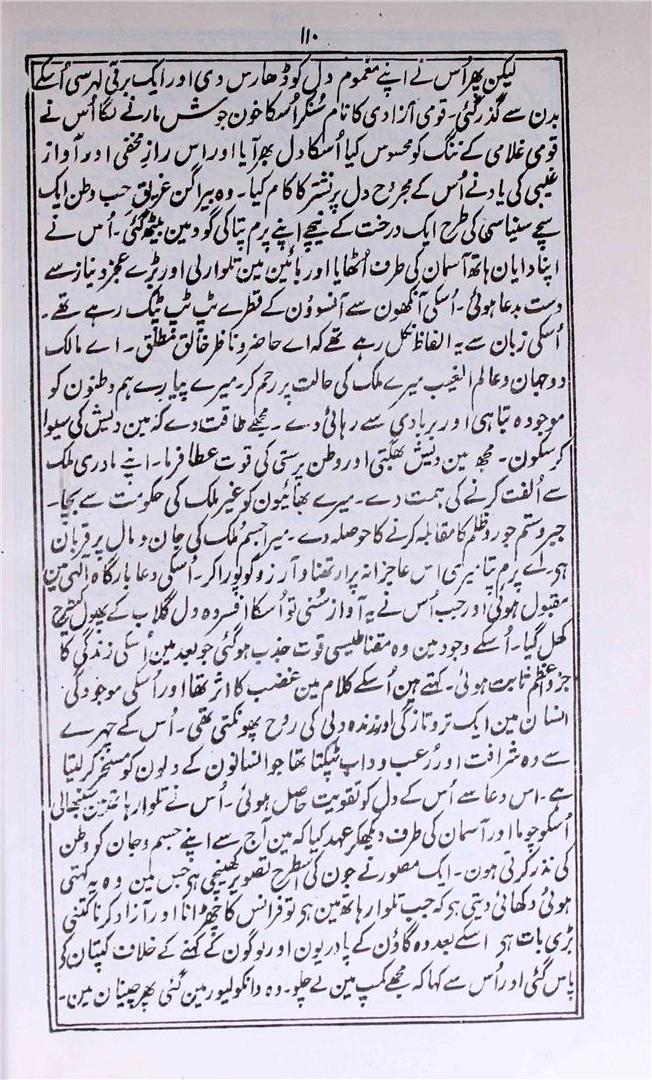 ۱۱۰
لیکن پھر اُس نے اپنے مغموم دل کو ڈھارس دی اور ایک برقی لہر سی اُسکے
بدن سے گذر گئی۔ قومی آزادی کا نام سُنکر اُسکا خون جوش مارنے لگا اُس نے
قومی غلامی کے ننگ کو محسوس کیا اُسکا دل بھر آیا اور اس رازِ مخفی اور آواز
غیبی کی یاد نے اُس کے مجروح دل پر نشتر کا کام کیا۔ وہ بیراگن غریق حب وطن ایک
سچے سنیاسی کی طرح ایک درخت کے نیچے اپنے پرم پتا کی گود مین بیٹھ گئی۔ اُس نے
اپنا دایان ہاتھ آسمان کی طرف اُٹھایا اور بائین مین تلوار لی اور بڑے عجز و نیاز سے
دست بدعا ہوئی۔ اُسکی آنکھون سے آنسوؤن کے قطرے ٹپ ٹپ ٹپک رہے تھے۔
اُسکی زبان سے یہ الفاظ نکل رہے تھے کہ اے حاضر و ناظر خالق مطلق۔ اے مالک
دوجہان و عالم الغیب میرے ملک کی حالت پر رحم کر۔ میرے پیارے ہم وطنون کو
موجودہ تباہی اور بربادی سے رہائی دے۔ مجھے طاقت دے کہ مین دیش کی سیوا
کر سکون۔ مجھ مین دیش بھگتی اور وطن پرستی کی قوت عطا فرما۔ اپنے مادری ملک
سے اُلفت کرنے کی ہمت دے۔ میرے بھائیون کو غیر ملک کی حکومت سے بچا۔
جبر و ستم جور و ظلم کا مقابلہ کرنے کا حوصلہ دے۔ میرا جسم ملک کی جان و مال پر قربان
ہو۔ اے پرم پتا میری اس عاجزانہ پرارتھنا و آرزو کو پورا کر۔ اُسکی دعا بارگاہ الٰہی مین
مقبول ہوئی اور جب اُس نے یہ آواز سُنی تو اُسکا افسردہ دل گلاب کے پھول کیطرح
کھل گیا۔ اُسکے وجود مین وہ مقناطیسی قوت جذب ہو گئی جو بعد مین اُسکی زندگی کا
جزو اعظم ثابت ہوئی۔ کہتے ہین اُسکے کلام مین غضب کا اثر تھا اور اُسکی موجودگی
انسان مین ایک تروتازگی اور زندہ دلی کی روح پھونکتی تھی۔ اُس کے چہرے
سے وہ شرافت اور رُعب و داب ٹپکتا تھا جو انسانون کے دلون کو مسخر کر لیتا
ہے۔ اس دعا سے اُس کے دل کو تقویت حاصل ہوئی۔ اُس نے تلوار ہاتھ مین سنبھالی
اُسکو چوما اور آسمان کی طرف دیکھکر عہد کیا کہ مین آج سے اپنے جسم و جان کو وطن
کی نذر کرتی ہون۔ ایک مصور نے جون کی اسطرح تصویر کھینچی ہی جس مین وہ یہ کہتی
ہوئی دکھائی دیتی ہی کہ جب تلوار ہاتھ مین ہی تو فرانس کا چھڑانا اور آزاد کرنا کتنی
بڑی بات ہی اسکے بعد وہ گاؤن کے پادریون اور لوگون کے کہنے کے خلاف کپتان کے
پاس گئی اور اُس سے کہا کہ مجھے کمپ مین لے چلو۔ وہ وانکولیور مین گئی پھر چینان مین۔